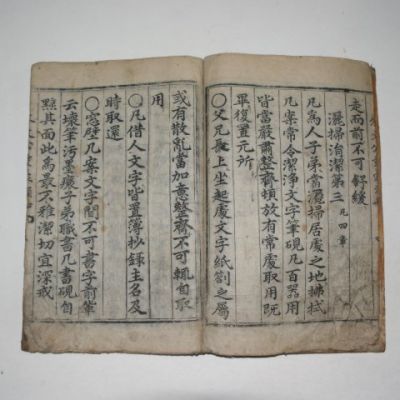 走而前不可舒緩
灑掃涓潔第三 凡四章
凡爲人子弟當灑掃居處之地拂拭
几案常令潔淨文字筆硯凡百器用
皆當嚴肅整齊頓放有常處取用旣
畢復置元所
○父兄長上坐起處文字紙劄之屬
或有散亂當加意整齊不可輒自取
用
○凡借人文字皆置簿抄錄主名及
時取還
○窓壁几案文字間不可書字前輩
云壞筆污墨瘝子弟職書几書硯自
黥其面此爲最不雅潔切宜深戒